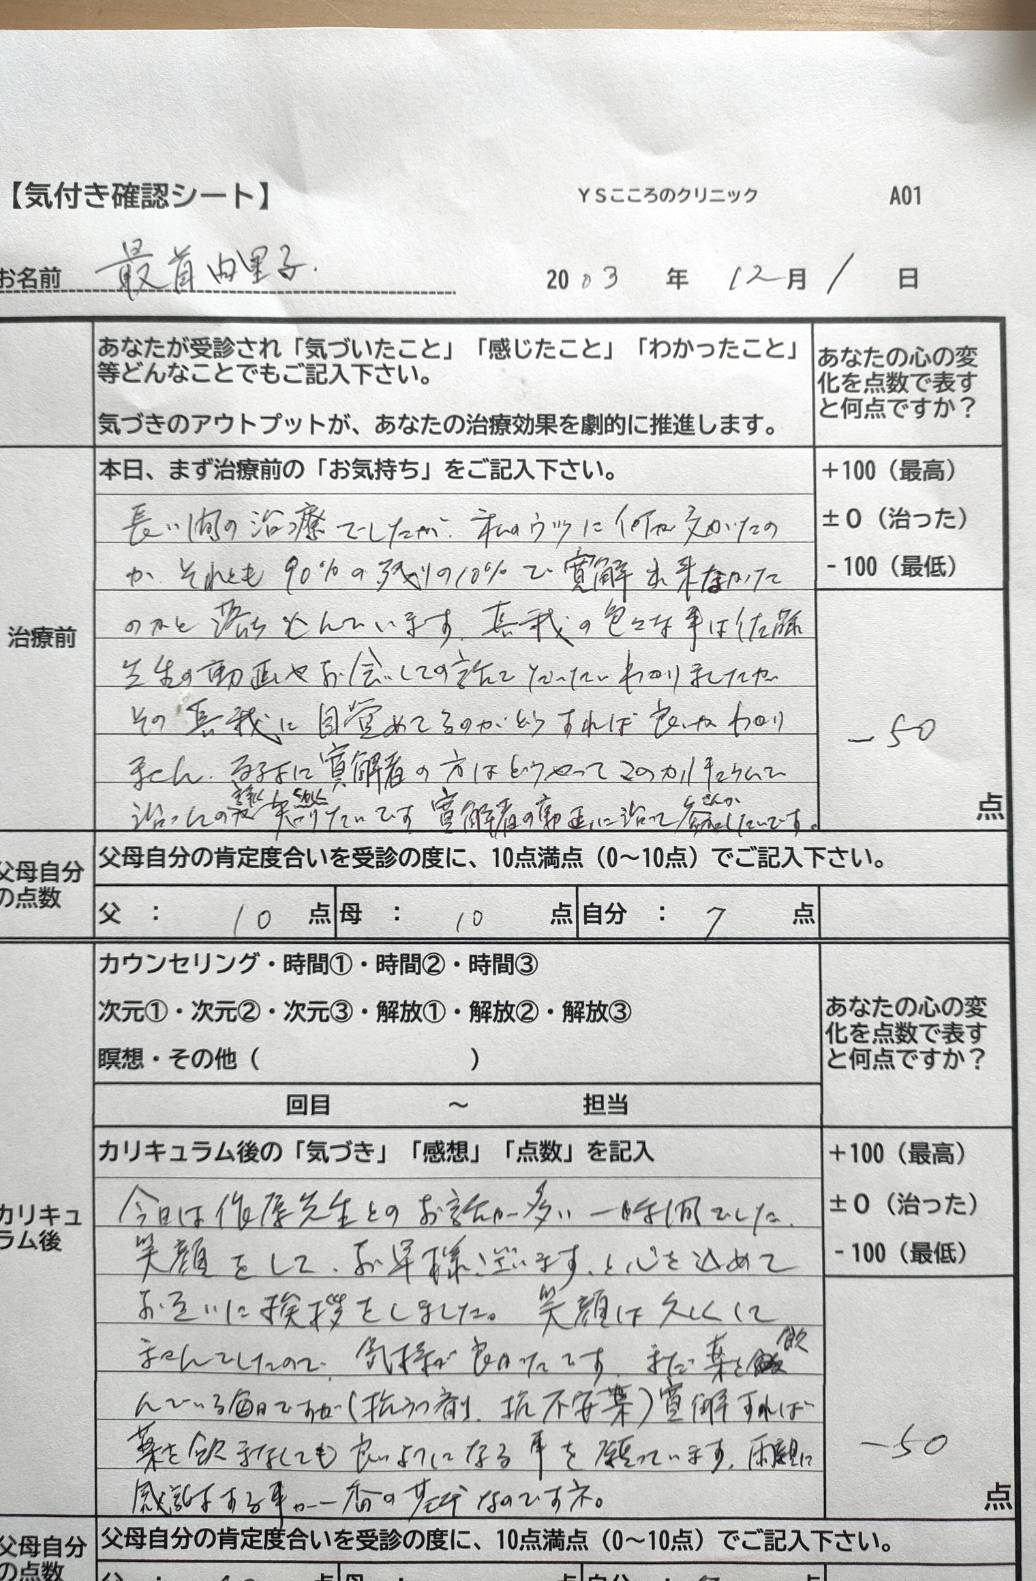 【気付き確認シート】 YSこころのクリニック A01
お名前 最首由里子. 2003 年 12月 1 日
あなたが受診され「気づいたこと」「感じたこと」「わかったこと」
等どんなことでもご記入下さい。
気づきのアウトプットが、あなたの治療効果を劇的に推進します。
あなたの心の変
化を点数で表す
と何点ですか？
治療前
本日、まず治療前の「お気持ち」をご記入下さい。
長い間の治療でしたが、私のウツに何が欠かたの
か、それとも90%の残りの10%で寛解出来なかた
のかと落ち込んでいます。真我の色々な事は佐藤
先生の動画やお会いしての話でだいたいわかりましたが
その真我に目覚めてるのがどうすれば良いかわかり
ません。 に寛解者の方はどうやってこのカリキュラムで
治ったの 知りたいです 寛解者の動画に治って参加したいです。
+100（最高）
±0（治った）
-100（最低）
-50
点
父母自分
の点数
父母自分の肯定度合いを受診の度に、10点満点（0～10点）でご記入下さい。
父 ： 10 点 母 ： 10 点 自分 ： 7 点
カウンセリング・時間①・時間②・時間③
次元①・次元②・次元③・解放①・解放②・解放③
瞑想・その他（ ）
回目 ～ 担当
あなたの心の変
化を点数で表す
と何点ですか？
カリキュ
ラム後
カリキュラム後の「気づき」「感想」「点数」を記入
今日は 先生とのお話が多い一時間でした。
笑顔をして、お早様ございます。と心を込めて
お互いに挨拶をしました。笑顔は久しくして
ませんでしたので、気持が良かたです。まだ薬を飲
んでいる毎日ですが(抗うつ剤、抗不安薬)寛解すれば
薬を飲まなくても良いようになる事を願っています。両親に
感謝する事が一番の なのですネ。
+100（最高）
±0（治った）
-100（最低）
-50
点
父母自分
の点数
父母自分の肯定度合いを受診の度に、10点満点（0～10点）でご記入下さい。